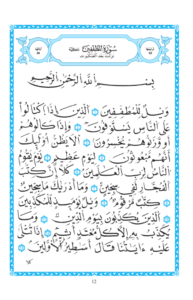 سُورَةُ الْمُطَفِّفِينَ مكية
نزلت بعد العنكبوت
بِسْمِ اللَّهِ الرَّحْمَٰنِ الرَّحِيمِ
وَيْلٌ لِّلْمُطَفِّفِينَ الَّذِينَ إِذَا اكْتَالُوا
عَلَى النَّاسِ يَسْتَوْفُونَ وَإِذَا كَالُوهُمْ
أَو وَّزَنُوهُمْ يُخْسِرُونَ أَلَا يَظُنُّ أُولَٰئِكَ
أَنَّهُم مَّبْعُوثُونَ لِيَوْمٍ عَظِيمٍ يَوْمَ يَقُومُ
النَّاسُ لِرَبِّ الْعَالَمِينَ كَلَّا إِنَّ كِتَابَ
الْفُجَّارِ لَفِي سِجِّينٍ وَمَا أَدْرَاكَ مَا سِجِّينٌ
كِتَابٌ مَّرْقُومٌ وَيْلٌ يَوْمَئِذٍ لِّلْمُكَذِّبِينَ
الَّذِينَ يُكَذِّبُونَ بِيَوْمِ الدِّينِ وَمَا
يُكَذِّبُ بِهِ إِلَّا كُلُّ مُعْتَدٍ أَثِيمٍ إِذَا تُتْلَىٰ
عَلَيْهِ آيَاتُنَا قَالَ أَسَاطِيرُ الْأَوَّلِينَ
كلا
12